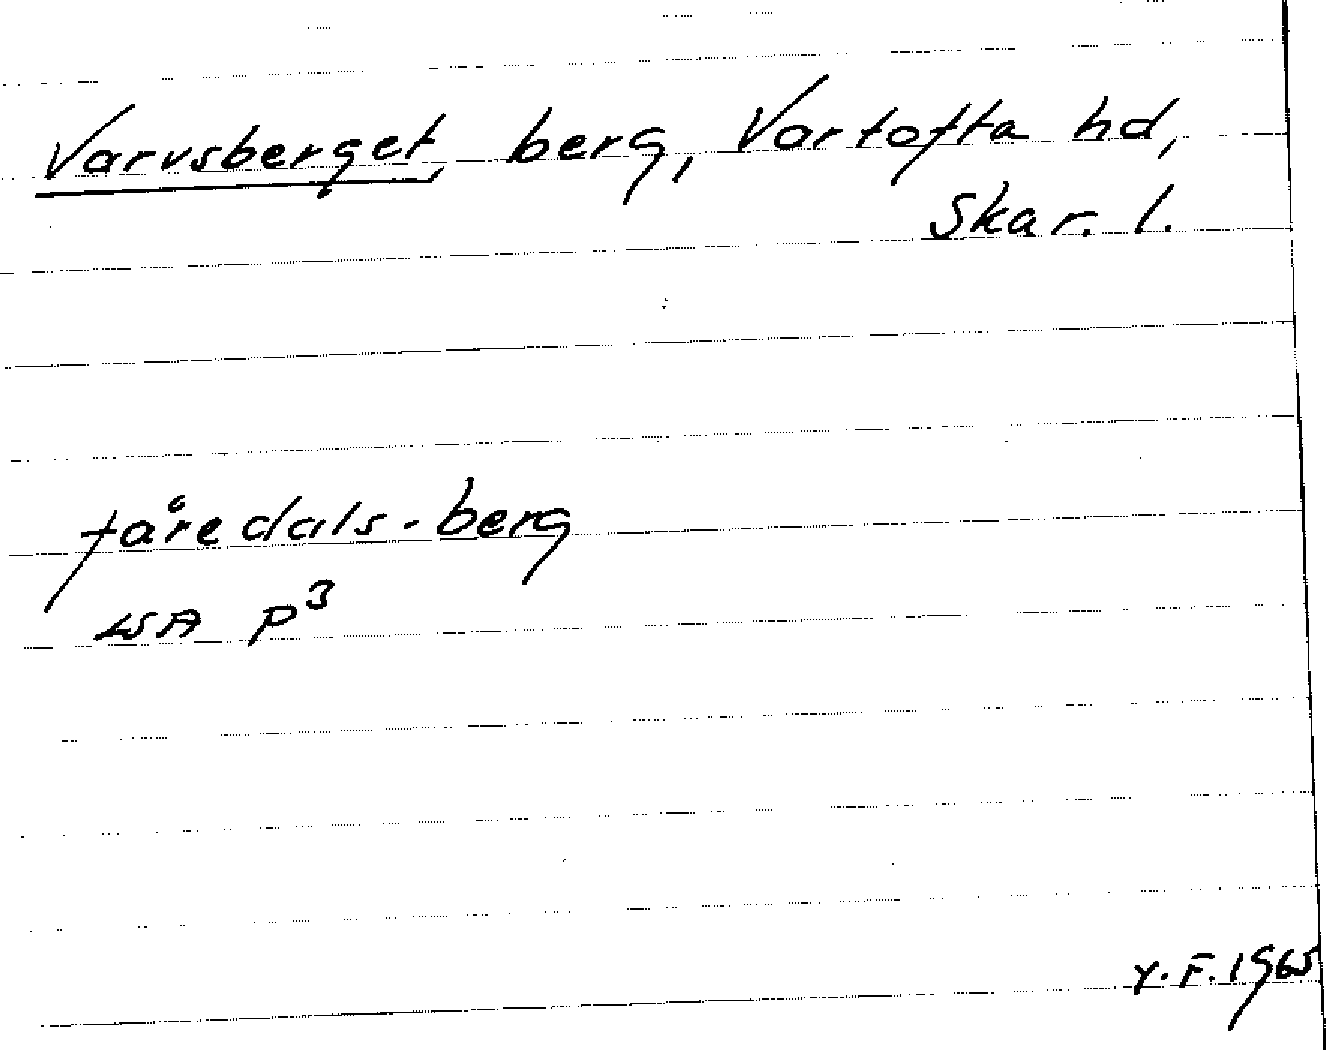 Varvsberget, berg, Vartofta hd,
Skar. l.
fåredals-berg
LSA P³
Y. F. 1965